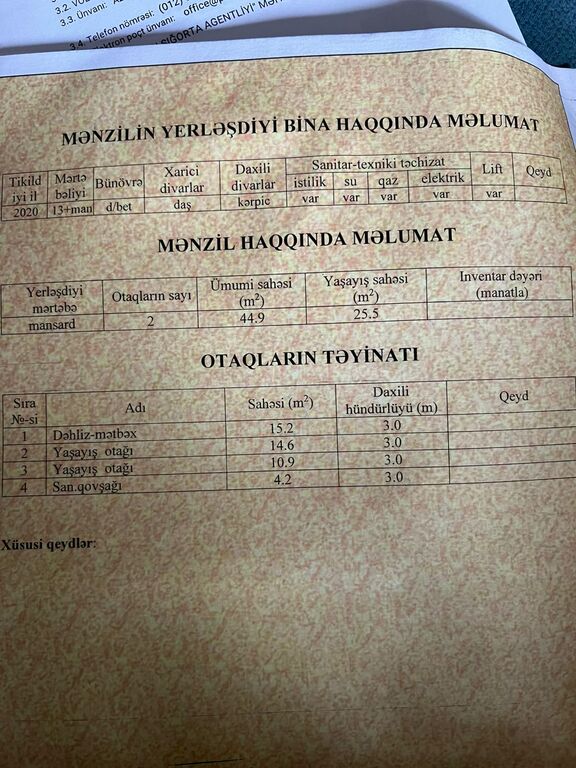 3.2. VÖ
3.3. Ünvanı: AZ
3.4. Telefon nömrəsi: (012)
ktron poçt ünvanı: office@p
SIĞORTA AGENTLİYİ" MƏH
MƏNZİLİN YERLƏŞDİYİ BİNA HAQQINDA MƏLUMAT
Tikild iyi il Mərtə bəliyi Bünövrə Xarici divarlar Daxili divarlar Sanitar-texniki təchizat Lift Qeyd
istilik su qaz elektrik
2020 13+man d/bet daş kərpic var var var var var
MƏNZİL HAQQINDA MƏLUMAT
Yerləşdiyi mərtəbə Otaqların sayı Ümumi sahəsi (m²) Yaşayış sahəsi (m²) Inventar dəyəri (manatla)
mansard 2 44.9 25.5
OTAQLARIN TƏYİNATI
Sıra №-si Adı Sahəsi (m²) Daxili hündürlüyü (m) Qeyd
1 Dəhliz-mətbəx 15.2 3.0
2 Yaşayış otağı 14.6 3.0
3 Yaşayış otağı 10.9 3.0
4 San.qovşağı 4.2 3.0
Xüsusi qeydlər: